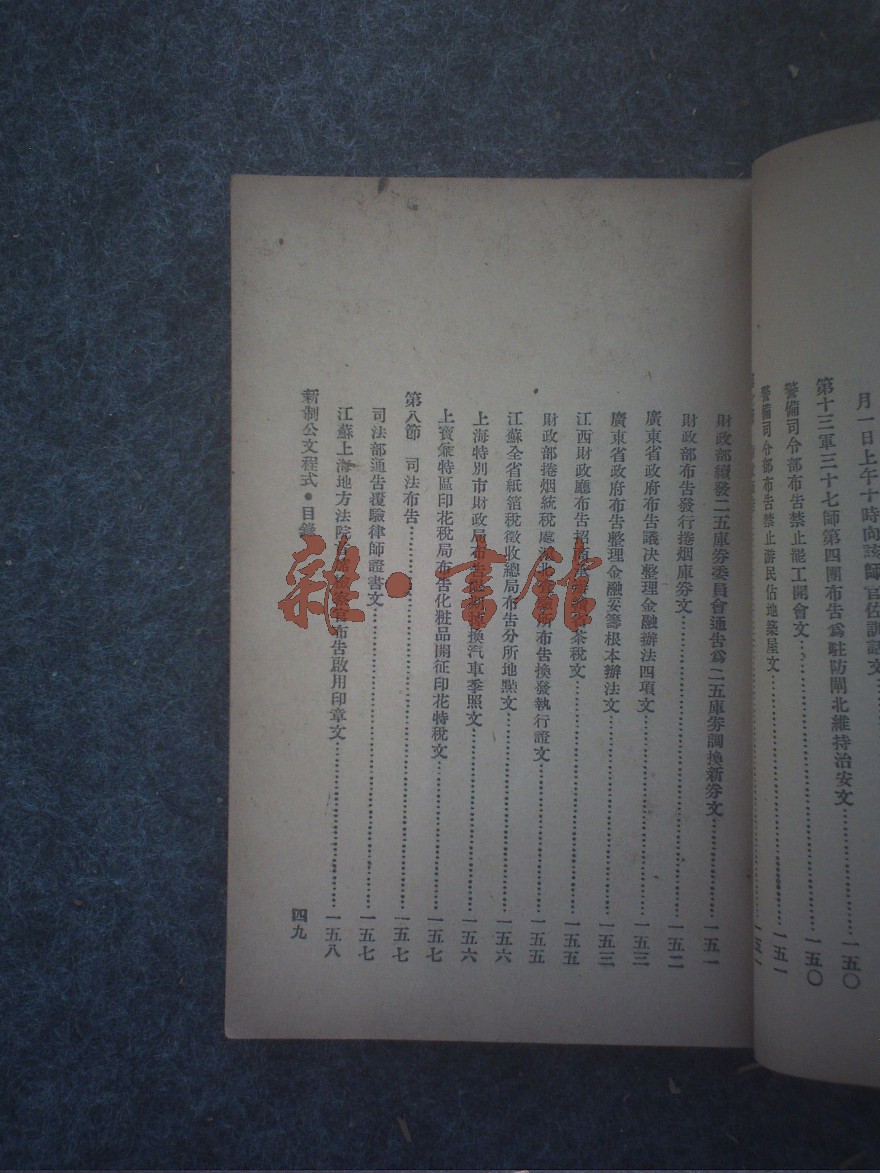 月一日上午十時向該師官佐訓話文 一五〇
第十三軍三十七師第四團布告爲駐防閘北維持治安文 一五〇
警備司令部布告禁止罷工開會文 一五一
警備司令部布告禁止游民佔地築屋文
財政部續發二五庫券委員會通告爲二五庫券調換新券文 一五一
財政部布告發行捲烟庫券文 一五二
廣東省政府布告議决整理金融辦法四項文 一五三
廣東省政府布告整理金融妥籌根本辦法文 一五三
江西財政廳布告招商承 茶稅文 一五五
財政部捲烟統稅處 北 布告換發執行證文 一五五
江蘇全省紙箔稅徵收總局布告分所地點文 一五六
上海特別市財政局布告 換汽車季照文 一五六
上寶 特區印花稅局布告化粧品開征印花特稅文 一五七
第八節 司法布告 一五七
司法部通告覆驗律師證書文 一五七
江蘇上海地方法院 布告啟用印章文 一五八
新制公文程式・目錄 四九
雜・書館